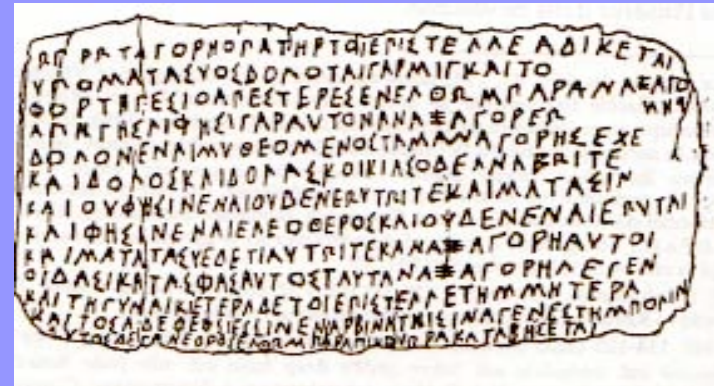 ΩΠΡΩΤΑΓΟΡΗΟΠΑΤΗΡΤΟΙΕΠΙΣΤΕΛΛΕΑΔΙΚΕΤΑΙ
ΥΠΟΜΑΤΑΣΥΟΣΔΟΛΟΤΑΙΓΑΡΜΙΓΚΑΙΤΟ
ΦΟΡΤΗΓΕΣΙΟΑΠΕΣΤΕΡΕΣΕΝΕΛΘΩΜΠΑΡΑΝΑΞΑΓΟ
ΡΗΝ
ΑΠΗΓΗΣΑΙΦΗΣΙΓΑΡΑΥΤΟΝΑΝΑΞΑΓΟΡΕΩ
ΔΟΛΟΝΕΝΑΙΜΥΘΕΟΜΕΝΟΣΤΑΜΑΝΑΓΟΡΗΣΕΧΕ
ΚΑΙΔΟΛΟΣΚΑΙΔΟΛΑΣΚΟΙΚΙΑΣΟΔΕΑΝΑΒΩΙΤΕ
ΚΑΙΟΥΦΗΣΙΝΕΝΑΙΟΥΔΕΝΕΩΥΤΩΙΤΕΚΑΙΜΑΤΑΣΙΝ
ΚΑΙΦΗΣΙΝΕΝΑΙΕΛΕΟΘΕΡΟΣΚΑΙΟΥΔΕΝΕΝΑΙΕΩΥΤΩΙ
ΚΑΙΜΑΤΑΤΑΣΥΕΔΕΤΙΑΥΤΩΙΤΕΚΑΝΑΞΑΓΟΡΗΑΥΤΟΙ
ΟΙΔΑΣΙΚΑΤΑΣΦΑΣΑΥΤΟΣΤΑΥΤΑΝΑΞΑΓΟΡΗΛΕΓΕΝ
ΚΑΙΤΗΓΥΝΑΙΚΙΕΤΕΡΑΔΕΤΟΙΕΠΙΣΤΕΛΛΕΤΗΜΜΗΤΕΡΑ